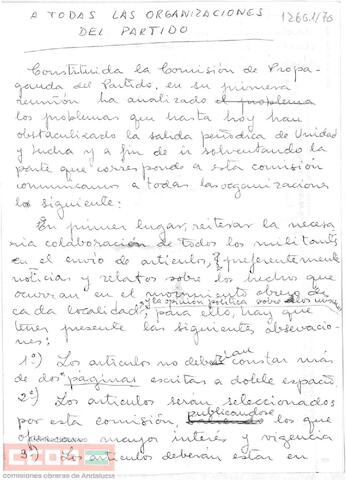 A TODAS LAS ORGANIZACIONES
DEL PARTIDO
12661/70
Constituida la Comisión de Propa-
ganda del Partido, en su primera
reunión ha analizado el problema
los problemas que hasta hoy han
obstaculizado la salida periódica de Unidad
y Lucha y a fin de ir solventando la
parte que corresponde a esta comisión
comunicamos a todas las organizaciones
lo siguiente:
En primer lugar, reiterar la necesa-
ria colaboración de todos los militantes
en el envio de articulos, preferentemente
noticias y relatos sobre los hechos que
ocurran en el movimiento obrero de
y la opinión politica sobre los mismos
cada localidad, para ello, hay que
tener presente las siguientes observacio-
nes:
1º) Los articulos no deberian constar más
de dos "páginas" escritas a doble espacio
2º) Los articulos serán seleccionados
por esta comisión, publicandose los que
mayor interés y vigencia
3º) Los articulos deberán estar en
CCOO
comisiones obreras de Andalucía